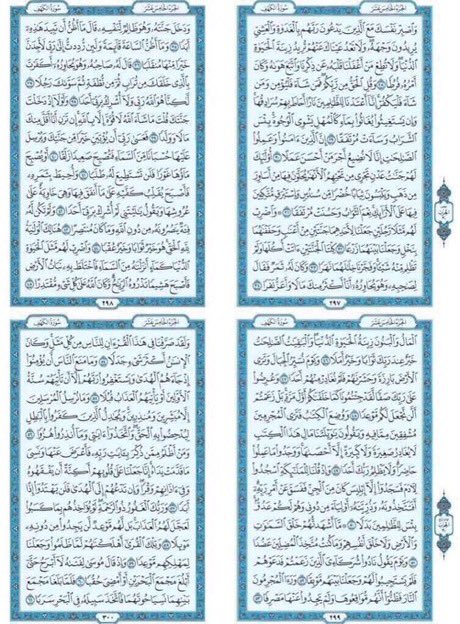 الجزء الخامس عشر سورة الكهف
وَٱصْبِرْ نَفْسَكَ مَعَ ٱلَّذِينَ يَدْعُونَ رَبَّهُم بِٱلْغَدَوٰةِ وَٱلْعَشِيِّ
يُرِيدُونَ وَجْهَهُۥ وَلَا تَعْدُ عَيْنَاكَ عَنْهُمْ تُرِيدُ زِينَةَ ٱلْحَيَوٰةِ
ٱلدُّنْيَا وَلَا تُطِعْ مَنْ أَغْفَلْنَا قَلْبَهُۥ عَن ذِكْرِنَا وَٱتَّبَعَ هَوَىٰهُ وَكَانَ
أَمْرُهُۥ فُرُطًا ٢٨ وَقُلِ ٱلْحَقُّ مِن رَّبِّكُمْ فَمَن شَآءَ فَلْيُؤْمِن وَمَن
شَآءَ فَلْيَكْفُرْ إِنَّآ أَعْتَدْنَا لِلظَّٰلِمِينَ نَارًا أَحَاطَ بِهِمْ سُرَادِقُهَا
وَإِن يَسْتَغِيثُوا۟ يُغَاثُوا۟ بِمَآءٍ كَٱلْمُهْلِ يَشْوِى ٱلْوُجُوهَ بِئْسَ
ٱلشَّرَابُ وَسَآءَتْ مُرْتَفَقًا ٢٩ إِنَّ ٱلَّذِينَ ءَامَنُوا۟ وَعَمِلُوا۟
ٱلصَّٰلِحَٰتِ إِنَّا لَا نُضِيعُ أَجْرَ مَنْ أَحْسَنَ عَمَلًا ٣٠ أُو۟لَٰٓئِكَ
لَهُمْ جَنَّٰتُ عَدْنٍ تَجْرِى مِن تَحْتِهِمُ ٱلْأَنْهَٰرُ يُحَلَّوْنَ فِيهَا مِنْ أَسَاوِرَ
مِن ذَهَبٍ وَيَلْبَسُونَ ثِيَابًا خُضْرًا مِّن سُندُسٍ وَإِسْتَبْرَقٍ مُّتَّكِـِٔينَ
فِيهَا عَلَى ٱلْأَرَآئِكِ نِعْمَ ٱلثَّوَابُ وَحَسُنَتْ مُرْتَفَقًا ٣١ وَٱضْرِبْ
لَهُم مَّثَلًا رَّجُلَيْنِ جَعَلْنَا لِأَحَدِهِمَا جَنَّتَيْنِ مِنْ أَعْنَٰبٍ وَحَفَفْنَٰهُمَا
بِنَخْلٍ وَجَعَلْنَا بَيْنَهُمَا زَرْعًا ٣٢ كِلْتَا ٱلْجَنَّتَيْنِ ءَاتَتْ أُكُلَهَا وَلَمْ
تَظْلِم مِّنْهُ شَيْـًٔا وَفَجَّرْنَا خِلَٰلَهُمَا نَهَرًا ٣٣ وَكَانَ لَهُۥ ثَمَرٌ فَقَالَ
لِصَٰحِبِهِۦ وَهُوَ يُحَاوِرُهُۥٓ أَنَا۠ أَكْثَرُ مِنكَ مَالًا وَأَعَزُّ نَفَرًا ٣٤
٢٩٧
الجزء الخامس عشر سورة الكهف
وَدَخَلَ جَنَّتَهُۥ وَهُوَ ظَالِمٌ لِّنَفْسِهِۦ قَالَ مَآ أَظُنُّ أَن تَبِيدَ هَٰذِهِۦٓ
أَبَدًا ٣٥ وَمَآ أَظُنُّ ٱلسَّاعَةَ قَآئِمَةً وَلَئِن رُّدِدتُّ إِلَىٰ رَبِّى لَأَجِدَنَّ
خَيْرًا مِّنْهَا مُنقَلَبًا ٣٦ قَالَ لَهُۥ صَاحِبُهُۥ وَهُوَ يُحَاوِرُهُۥٓ أَكَفَرْتَ
بِٱلَّذِى خَلَقَكَ مِن تُرَابٍ ثُمَّ مِن نُّطْفَةٍ ثُمَّ سَوَّىٰكَ رَجُلًا ٣٧
لَّٰكِنَّا۠ هُوَ ٱللَّهُ رَبِّى وَلَآ أُشْرِكُ بِرَبِّىٓ أَحَدًا ٣٨ وَلَوْلَآ إِذْ دَخَلْتَ
جَنَّتَكَ قُلْتَ مَا شَآءَ ٱللَّهُ لَا قُوَّةَ إِلَّا بِٱللَّهِ إِن تَرَنِ أَنَا۠ أَقَلَّ مِنكَ
مَالًا وَوَلَدًا ٣٩ فَعَسَىٰ رَبِّىٓ أَن يُؤْتِيَنِ خَيْرًا مِّن جَنَّتِكَ وَيُرْسِلَ
عَلَيْهَا حُسْبَانًا مِّنَ ٱلسَّمَآءِ فَتُصْبِحَ صَعِيدًا زَلَقًا ٤٠ أَوْ يُصْبِحَ
مَآؤُهَا غَوْرًا فَلَن تَسْتَطِيعَ لَهُۥ طَلَبًا ٤١ وَأُحِيطَ بِثَمَرِهِۦ
فَأَصْبَحَ يُقَلِّبُ كَفَّيْهِ عَلَىٰ مَآ أَنفَقَ فِيهَا وَهِىَ خَاوِيَةٌ عَلَىٰ
عُرُوشِهَا وَيَقُولُ يَٰلَيْتَنِى لَمْ أُشْرِكْ بِرَبِّىٓ أَحَدًا ٤٢ وَلَمْ تَكُن لَّهُۥ
فِئَةٌ يَنصُرُونَهُۥ مِن دُونِ ٱللَّهِ وَمَا كَانَ مُنتَصِرًا ٤٣ هُنَالِكَ ٱلْوَلَٰيَةُ
لِلَّهِ ٱلْحَقِّ هُوَ خَيْرٌ ثَوَابًا وَخَيْرٌ عُقْبًا ٤٤ وَٱضْرِبْ لَهُم مَّثَلَ ٱلْحَيَوٰةِ
ٱلدُّنْيَا كَمَآءٍ أَنزَلْنَٰهُ مِنَ ٱلسَّمَآءِ فَٱخْتَلَطَ بِهِۦ نَبَاتُ ٱلْأَرْضِ
فَأَصْبَحَ هَشِيمًا تَذْرُوهُ ٱلرِّيَٰحُ وَكَانَ ٱللَّهُ عَلَىٰ كُلِّ شَىْءٍ مُّقْتَدِرًا ٤٥
٢٩٨
الجزء الخامس عشر سورة الكهف
ٱلْمَالُ وَٱلْبَنُونَ زِينَةُ ٱلْحَيَوٰةِ ٱلدُّنْيَا وَٱلْبَٰقِيَٰتُ ٱلصَّٰلِحَٰتُ
خَيْرٌ عِندَ رَبِّكَ ثَوَابًا وَخَيْرٌ أَمَلًا ٤٦ وَيَوْمَ نُسَيِّرُ ٱلْجِبَالَ وَتَرَى
ٱلْأَرْضَ بَارِزَةً وَحَشَرْنَٰهُمْ فَلَمْ نُغَادِرْ مِنْهُمْ أَحَدًا ٤٧ وَعُرِضُوا۟
عَلَىٰ رَبِّكَ صَفًّا لَّقَدْ جِئْتُمُونَا كَمَا خَلَقْنَٰكُمْ أَوَّلَ مَرَّةٍۭ بَلْ زَعَمْتُمْ
أَلَّن نَّجْعَلَ لَكُم مَّوْعِدًا ٤٨ وَوُضِعَ ٱلْكِتَٰبُ فَتَرَى ٱلْمُجْرِمِينَ
مُشْفِقِينَ مِمَّا فِيهِ وَيَقُولُونَ يَٰوَيْلَتَنَا مَالِ هَٰذَا ٱلْكِتَٰبِ
لَا يُغَادِرُ صَغِيرَةً وَلَا كَبِيرَةً إِلَّآ أَحْصَىٰهَا وَوَجَدُوا۟ مَا عَمِلُوا۟
حَاضِرًا وَلَا يَظْلِمُ رَبُّكَ أَحَدًا ٤٩ وَإِذْ قُلْنَا لِلْمَلَٰٓئِكَةِ ٱسْجُدُوا۟
لِـَٔادَمَ فَسَجَدُوٓا۟ إِلَّآ إِبْلِيسَ كَانَ مِنَ ٱلْجِنِّ فَفَسَقَ عَنْ أَمْرِ رَبِّهِۦٓ
أَفَتَتَّخِذُونَهُۥ وَذُرِّيَّتَهُۥٓ أَوْلِيَآءَ مِن دُونِى وَهُمْ لَكُمْ عَدُوٌّۢ
بِئْسَ لِلظَّٰلِمِينَ بَدَلًا ٥٠ مَّآ أَشْهَدتُّهُمْ خَلْقَ ٱلسَّمَٰوَٰتِ
وَٱلْأَرْضِ وَلَا خَلْقَ أَنفُسِهِمْ وَمَا كُنتُ مُتَّخِذَ ٱلْمُضِلِّينَ عَضُدًا
٥١ وَيَوْمَ يَقُولُ نَادُوا۟ شُرَكَآءِىَ ٱلَّذِينَ زَعَمْتُمْ فَدَعَوْهُمْ
فَلَمْ يَسْتَجِيبُوا۟ لَهُمْ وَجَعَلْنَا بَيْنَهُم مَّوْبِقًا ٥٢ وَرَءَا ٱلْمُجْرِمُونَ
ٱلنَّارَ فَظَنُّوٓا۟ أَنَّهُم مُّوَاقِعُوهَا وَلَمْ يَجِدُوا۟ عَنْهَا مَصْرِفًا ٥٣
٢٩٩
الجزء الخامس عشر سورة الكهف
وَلَقَدْ صَرَّفْنَا فِى هَٰذَا ٱلْقُرْءَانِ لِلنَّاسِ مِن كُلِّ مَثَلٍ وَكَانَ
ٱلْإِنسَٰنُ أَكْثَرَ شَىْءٍ جَدَلًا ٥٤ وَمَا مَنَعَ ٱلنَّاسَ أَن يُؤْمِنُوٓا۟
إِذْ جَآءَهُمُ ٱلْهُدَىٰ وَيَسْتَغْفِرُوا۟ رَبَّهُمْ إِلَّآ أَن تَأْتِيَهُمْ سُنَّةُ
ٱلْأَوَّلِينَ أَوْ يَأْتِيَهُمُ ٱلْعَذَابُ قُبُلًا ٥٥ وَمَا نُرْسِلُ ٱلْمُرْسَلِينَ
إِلَّا مُبَشِّرِينَ وَمُنذِرِينَ وَيُجَٰدِلُ ٱلَّذِينَ كَفَرُوا۟ بِٱلْبَٰطِلِ
لِيُدْحِضُوا۟ بِهِ ٱلْحَقَّ وَٱتَّخَذُوٓا۟ ءَايَٰتِى وَمَآ أُنذِرُوا۟ هُزُوًا ٥٦
وَمَنْ أَظْلَمُ مِمَّن ذُكِّرَ بِـَٔايَٰتِ رَبِّهِۦ فَأَعْرَضَ عَنْهَا وَنَسِىَ
مَا قَدَّمَتْ يَدَاهُ إِنَّا جَعَلْنَا عَلَىٰ قُلُوبِهِمْ أَكِنَّةً أَن يَفْقَهُوهُ
وَفِىٓ ءَاذَانِهِمْ وَقْرًا وَإِن تَدْعُهُمْ إِلَى ٱلْهُدَىٰ فَلَن يَهْتَدُوٓا۟ إِذًا
أَبَدًا ٥٧ وَرَبُّكَ ٱلْغَفُورُ ذُو ٱلرَّحْمَةِ لَوْ يُؤَاخِذُهُم بِمَا كَسَبُوا۟
لَعَجَّلَ لَهُمُ ٱلْعَذَابَ بَل لَّهُم مَّوْعِدٌ لَّن يَجِدُوا۟ مِن دُونِهِۦ
مَوْئِلًا ٥٨ وَتِلْكَ ٱلْقُرَىٰٓ أَهْلَكْنَٰهُمْ لَمَّا ظَلَمُوا۟ وَجَعَلْنَا
لِمَهْلِكِهِم مَّوْعِدًا ٥٩ وَإِذْ قَالَ مُوسَىٰ لِفَتَىٰهُ لَآ أَبْرَحُ حَتَّىٰٓ
أَبْلُغَ مَجْمَعَ ٱلْبَحْرَيْنِ أَوْ أَمْضِىَ حُقُبًا ٦٠ فَلَمَّا بَلَغَا مَجْمَعَ
بَيْنِهِمَا نَسِيَا حُوتَهُمَا فَٱتَّخَذَ سَبِيلَهُۥ فِى ٱلْبَحْرِ سَرَبًا ٦١
٣٠٠